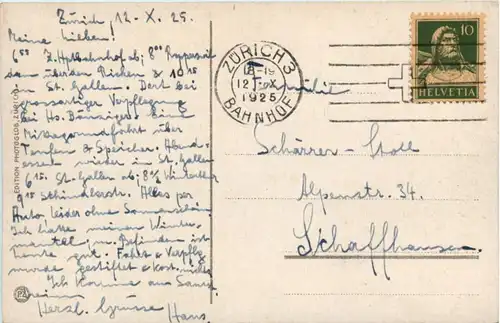 Zürich 12-X. 25.
Meine Lieben!
6⁵⁵ Z. Hptbahnhof ab; 8⁰⁰ Rapperswil
dann über den Ricken & 10¹⁵
in St. Gallen. Dort bei
grossartiger Verpflegung
bei Ho. Eine
Mittagsrundfahrt über
Teufen & Speicher. Abend-
essen wieder in St. Gallen
6¹⁵ St. Gallen ab; 8½ Winterthur
9¹⁵ Schindlerstr. Alles per
Auto leider ohne Sonnenschein.
Ich hatte meinen Winter-
mantel, m. Befinden ist
heute gut. Fahrt & Verpflg
wurde gestiftet & kost. nichts
Ich komme am Samstag
heim
Herzl. Grüsse Hans.
EDITION PHOTOGLOB, ZÜRICH
ZÜRICH 3
12 X
1925
BAHNHOF
10
HELVETIA
Familie
Schärrer-Stoll
Alpenstr. 34.
Schaffhausen.